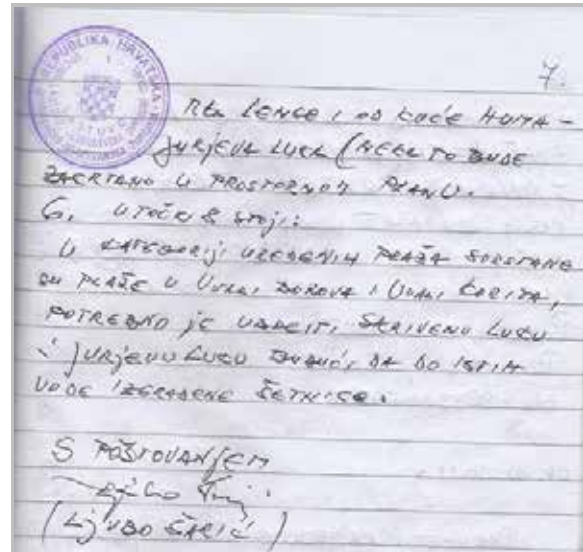 REPUBLIKA HRVATSKA
7.
RTA LENGE I OD KUĆE HUMA-
JURJEVA LUKA (NEKA TO BUDE
ZACRTANO U PROSTORNOM PLANU.
6. U TOČKI 8 STOJI:
U KATEGORIJI UREĐENIH PLAŽA SVRSTANE
SU PLAŽE U UVALI BOROVA I UVALI KARITA,
POTREBNO JE UBACITI SKRIVENU LUKU
I JURJEVU LUKU BUDUĆI DA DO ISTIH
VODE IZGRAĐENE ŠETNICE.
S POŠTOVANJEM
(LJUBO ŠARIĆ)